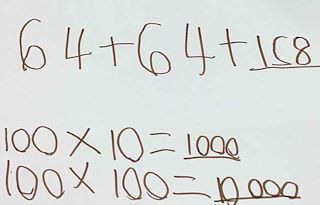 64+64+158
100×10=1000
100×100=10000